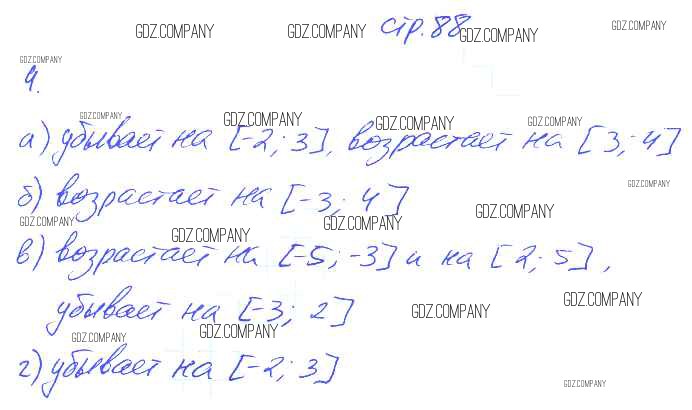 GDZ.COMPANY GDZ.COMPANY стр. 88 GDZ.COMPANY GDZ.COMPANY
GDZ.COMPANY
4.
GDZ.COMPANY GDZ.COMPANY GDZ.COMPANY GDZ.COMPANY
а) убывает на [-2; 3], возрастает на [3; 4]
GDZ.COMPANY
б) возрастает на [-3; 4]
GDZ.COMPANY GDZ.COMPANY GDZ.COMPANY GDZ.COMPANY
в) возрастает на [-5; -3] и на [2; 5],
убывает на [-3; 2]
GDZ.COMPANY GDZ.COMPANY
GDZ.COMPANY GDZ.COMPANY
г) убывает на [-2; 3]
GDZ.COMPANY